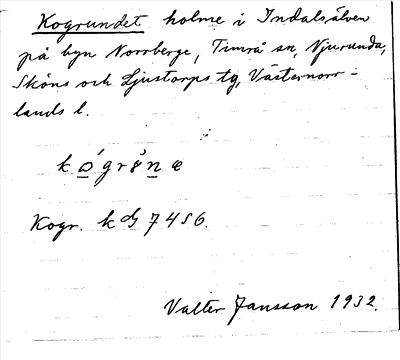 Kogrundet holme i Indalsälven
på byn Norrberge, Timrå sn, Njurunda,
Sköns och Ljustorps tg, Västernorr-
lands l.
Kogr.
7456.
Valter Jansson 1932.